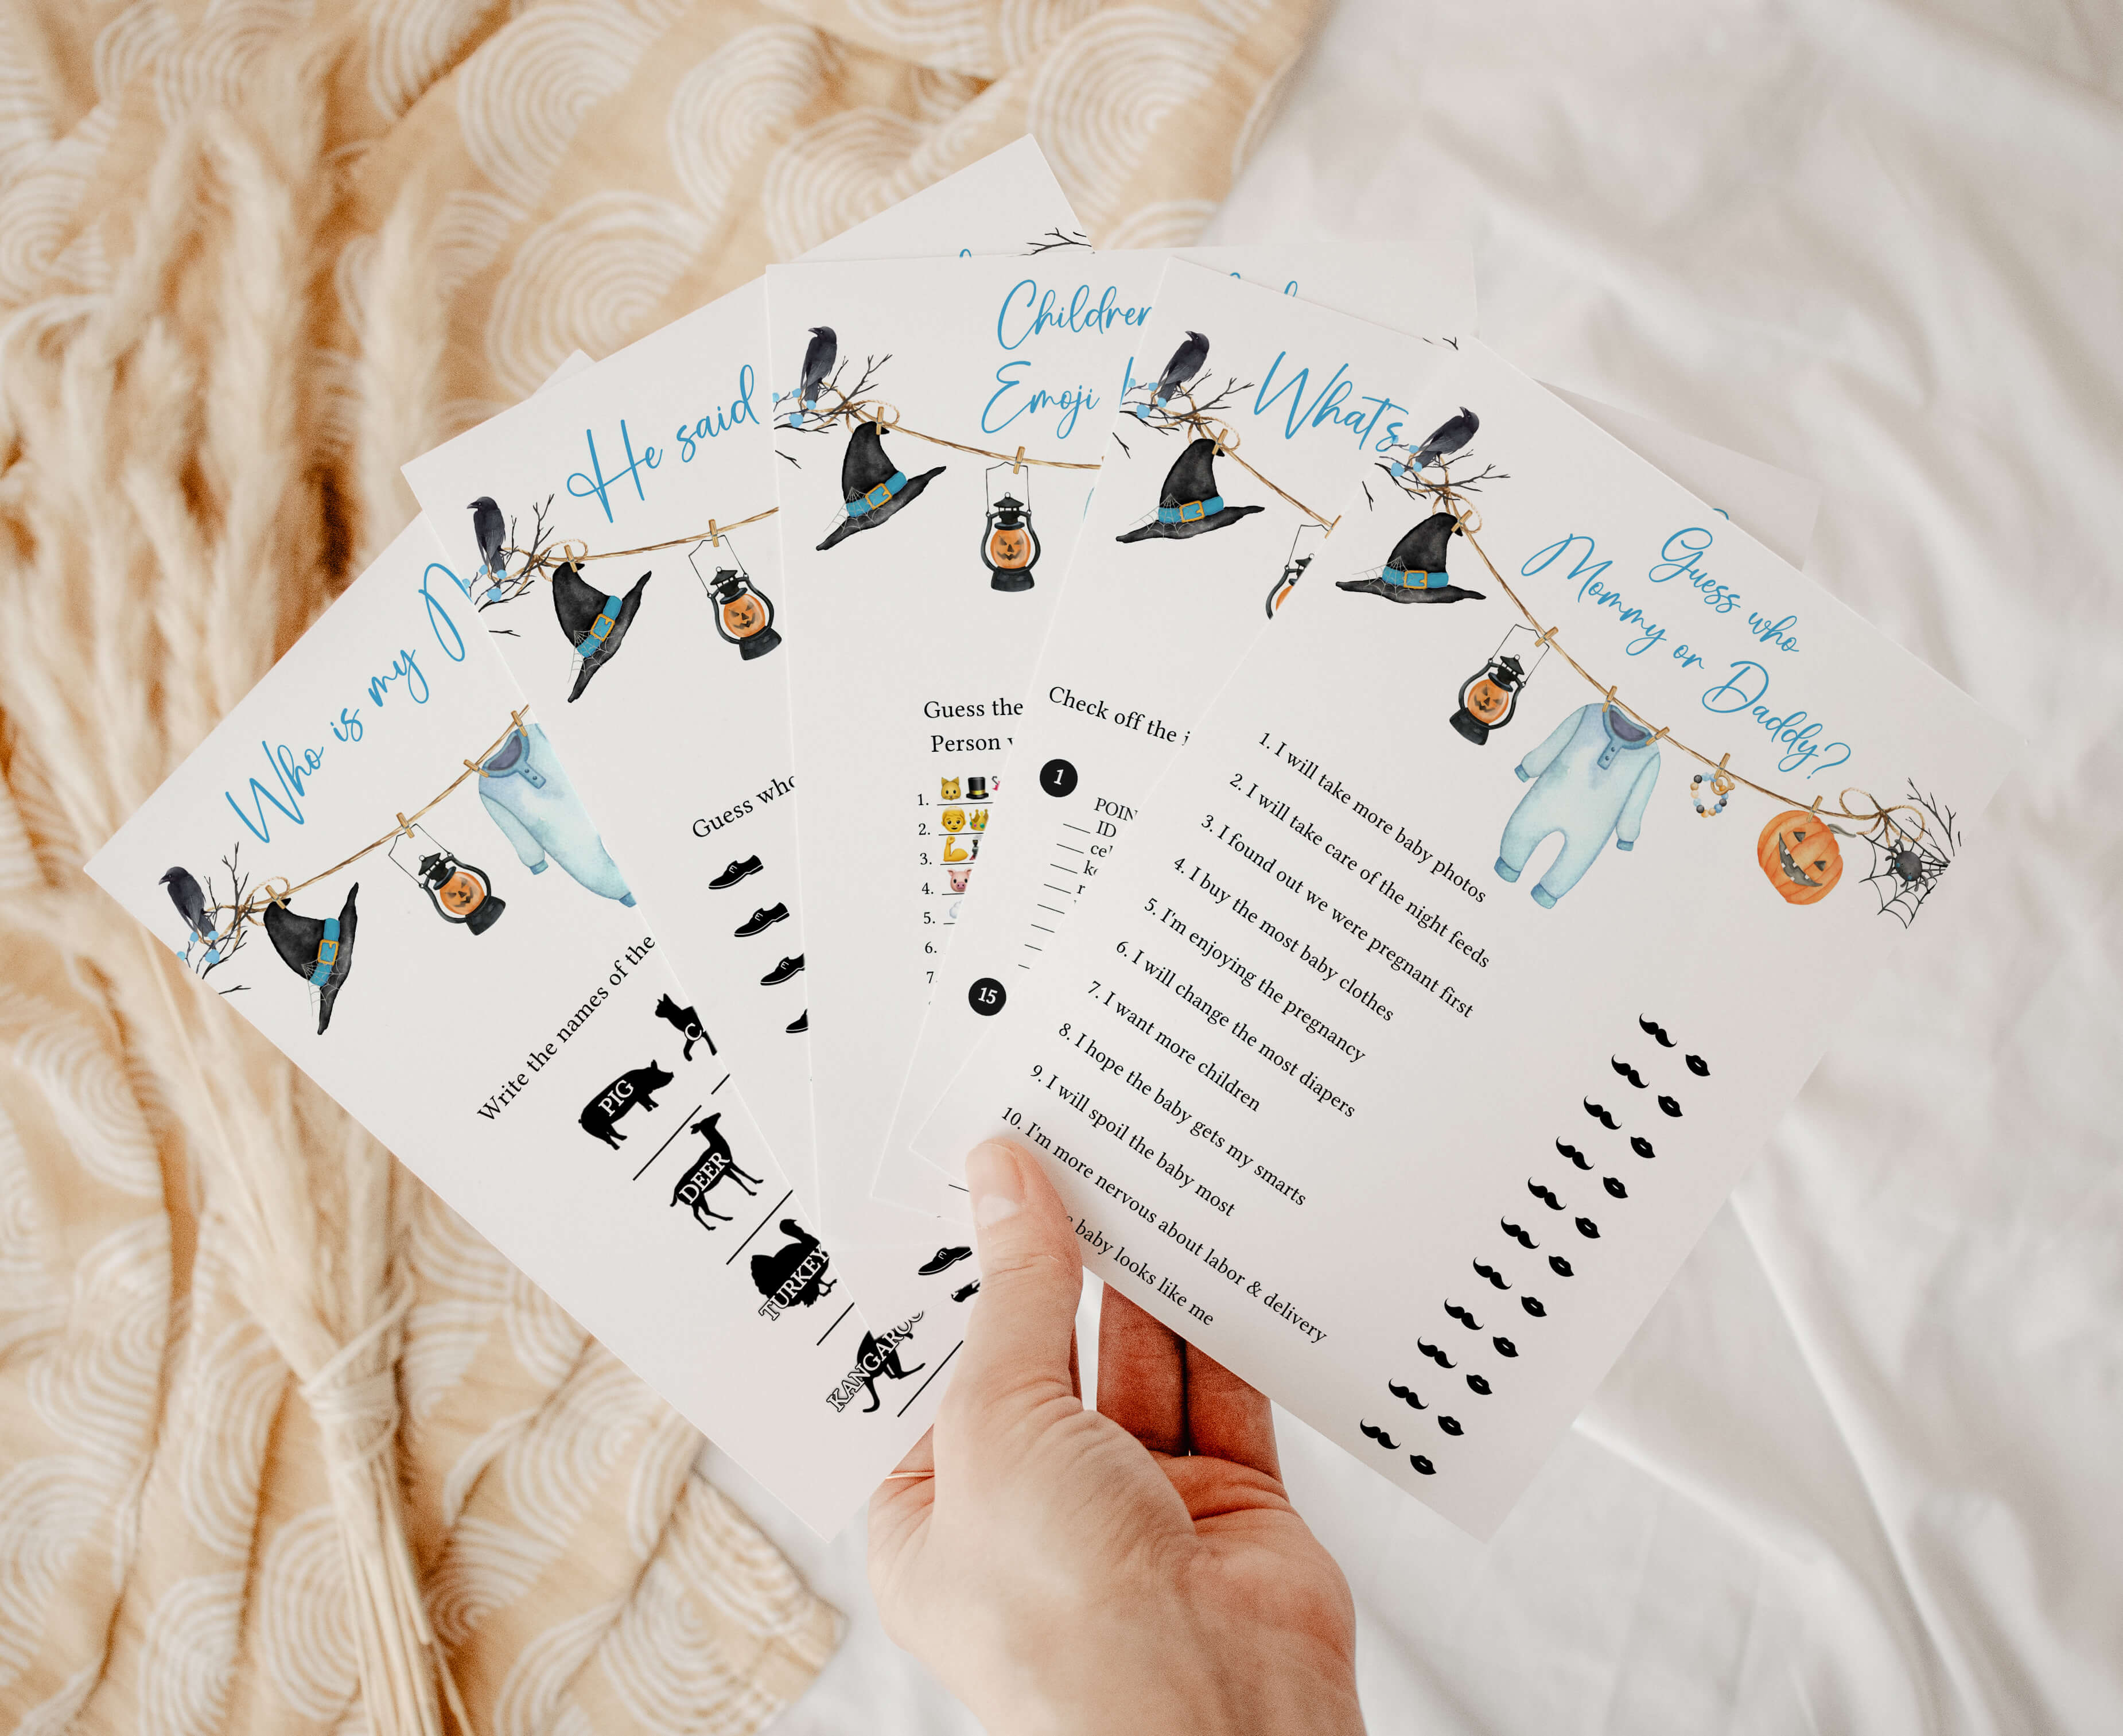 Who is my
Write the names of the
PIG
DEER
TURKEY
KANGAROO
He said
Guess who
Children
Emoji
Guess the
Person
1.
2.
3.
4.
5.
6.
7.
What's
Check off the
1
ID
15
Guess who
Mommy or Daddy?
1. I will take more baby photos
2. I will take care of the night feeds
3. I found out we were pregnant first
4. I buy the most baby clothes
5. I'm enjoying the pregnancy
6. I will change the most diapers
7. I want more children
8. I hope the baby gets my smarts
9. I will spoil the baby most
10. I'm more nervous about labor & delivery
baby looks like me